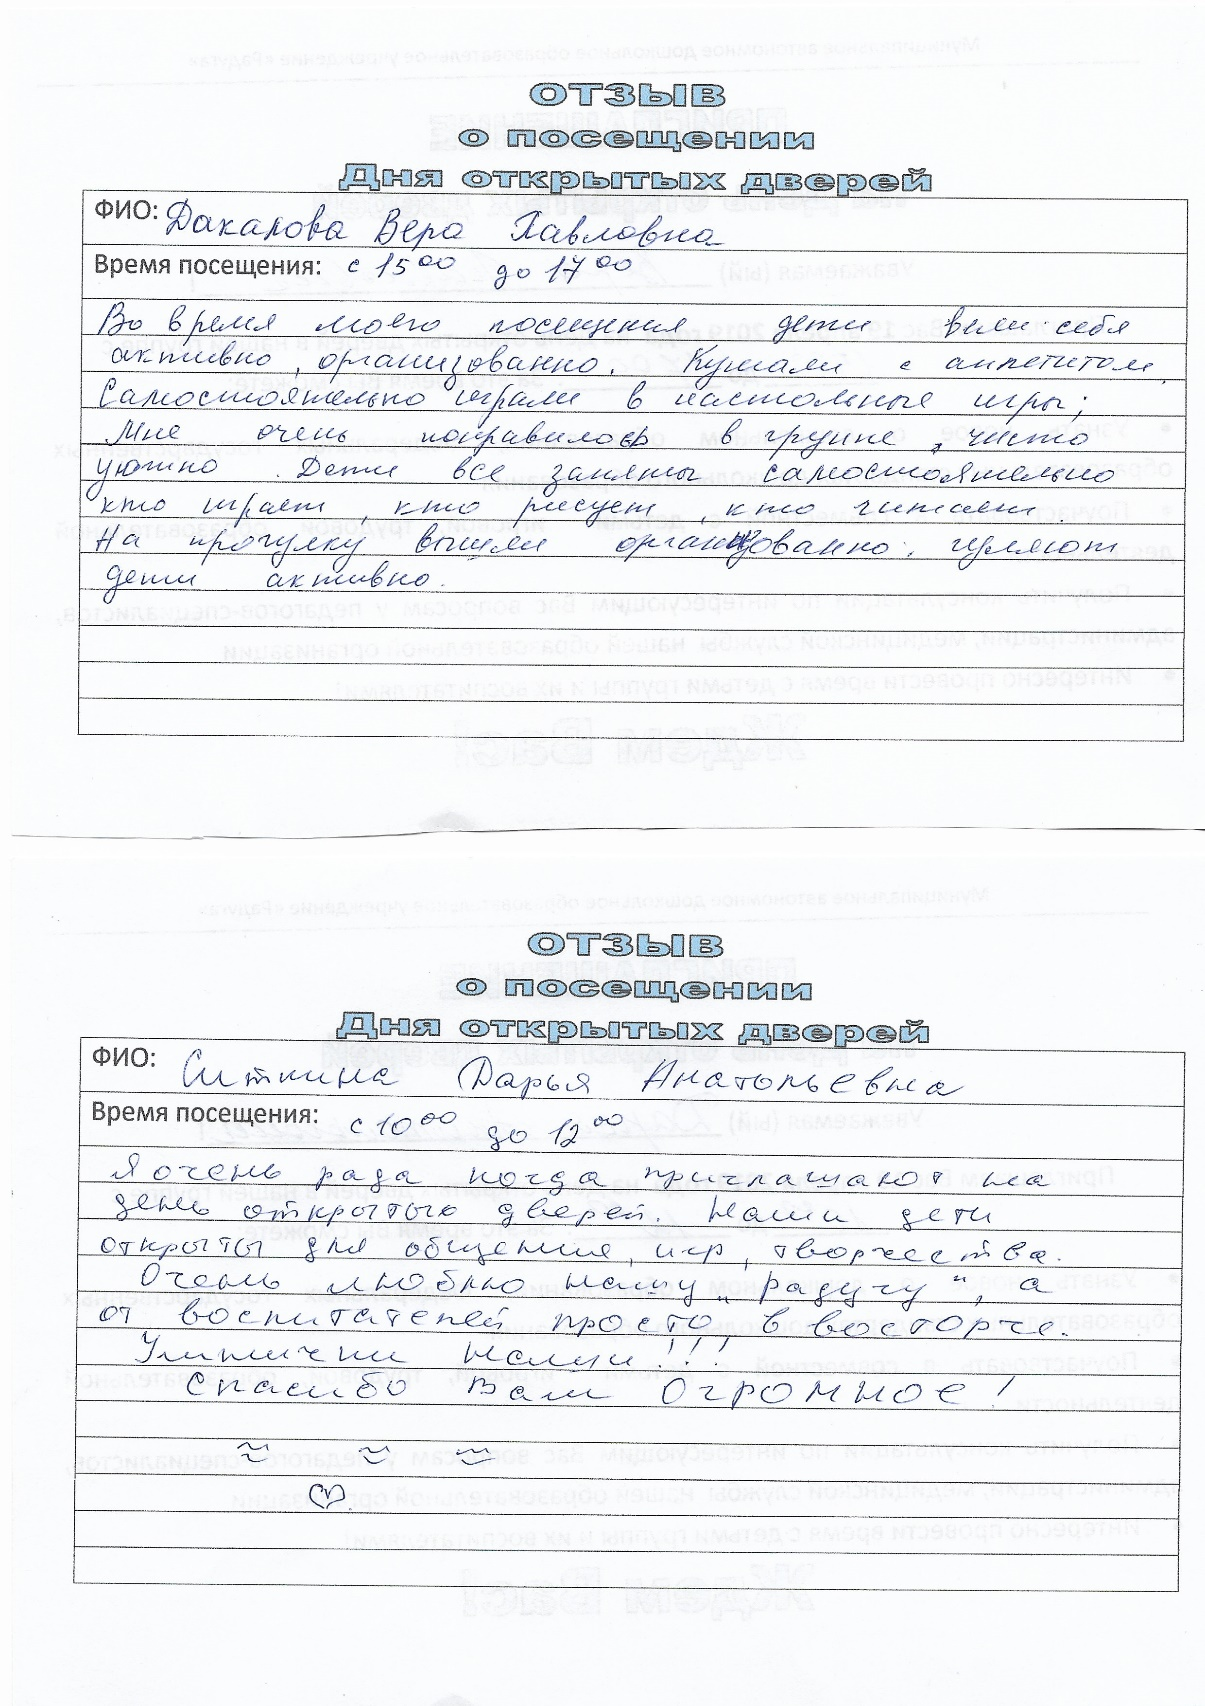 ОТЗЫВ
о посещении
Дня открытых дверей
ФИО: Дакалова Вера Павловна
Время посещения: с 15 00 до 17 00
Во время моего посещения дети вели себя
активно, организованно. Кушали с аппетитом.
Самостоятельно играли в настольные игры;
Мне очень понравилось в групне, чисто
уютно. Дети все заняты самостоятельно
кто играет, кто рисует, кто читает.
На прогулку вышли организованно, гуляют
дети активно.
ОТЗЫВ
о посещении
Дня открытых дверей
ФИО: Ситкина Дарья Анатольевна
Время посещения: с 10 00 до 12 00
Я очень рада когда приглашают на
день открытых дверей. Наши дети
открыты для общения, игр, творчества.
Очень люблю нашу „радугу“, а
от воспитателей просто в восторге.
Умнички наши!!!
Спасибо Вам Огромное!